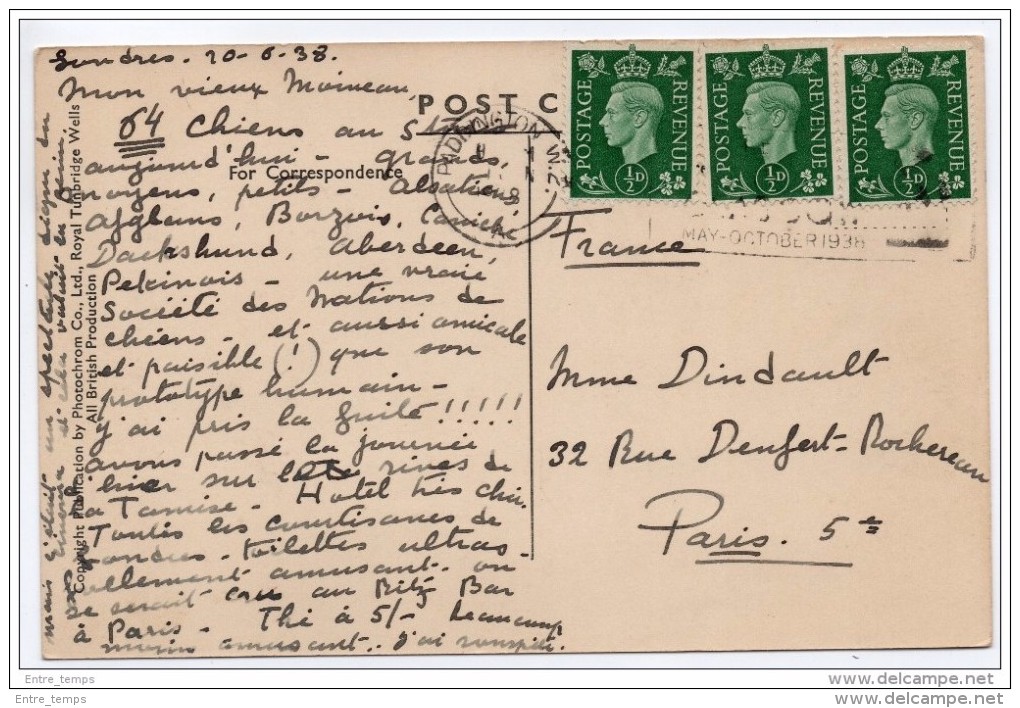 Londres. 20-6-38.
Mon vieux Moineau,
64 chiens au
aujourd'hui - grands,
moyens, petits - Alsatiens
Afghans, Borzois, Caniche
Dachshund, Aberdeen,
Pekinois - une vraie
Société des Nations de
chiens - et aussi amicale
et paisible (!) que son
prototype humain -
j'ai pris la fuite !!!!!
avons passé la journée
hier sur les rives de
la Tamise. Hotel très chic.
Toutes les courtisanes de
Londres - toilettes ultras -
follement amusant. on
se serait cru au Ritz Bar
à Paris - Thé à 5/- beaucoup
moins amusant. j'ai
mais c'était un spectacle digne du
cinema et
POST C
For Correspondence
Copyright Publication by Photochrom Co., Ltd., Royal Tunbridge Wells
All British Production
PADDINGTON
W.2.
MAY-OCTOBER 1938
POSTAGE REVENUE
½D
POSTAGE REVENUE
½D
POSTAGE REVENUE
½D
France
Mme Dindault
32 Rue Denfert-Rochereau
Paris. 5e
Entre_temps
www.delcampe.net
Entre_temps
www.delcampe.net